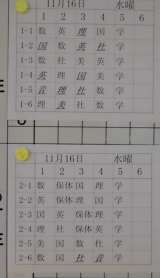 11月16日 水曜
1 2 3 4 5 6
1-1 数 英 理 国 学
1-2 国 数 英 社 学
1-3 数 社 美 英 学
1-4 英 理 国 美 学
1-5 音 理 社 社 学
1-6 理 美 社 数 学
11月16日 水曜
1 2 3 4 5 6
2-1 数 保体 国 理 学
2-2 数 保体 国 英 学
2-3 国 英 保体 理 学
2-4 理 社 保体 英 学
2-5 美 国 数 社 学
2-6 数 国 社 音 学